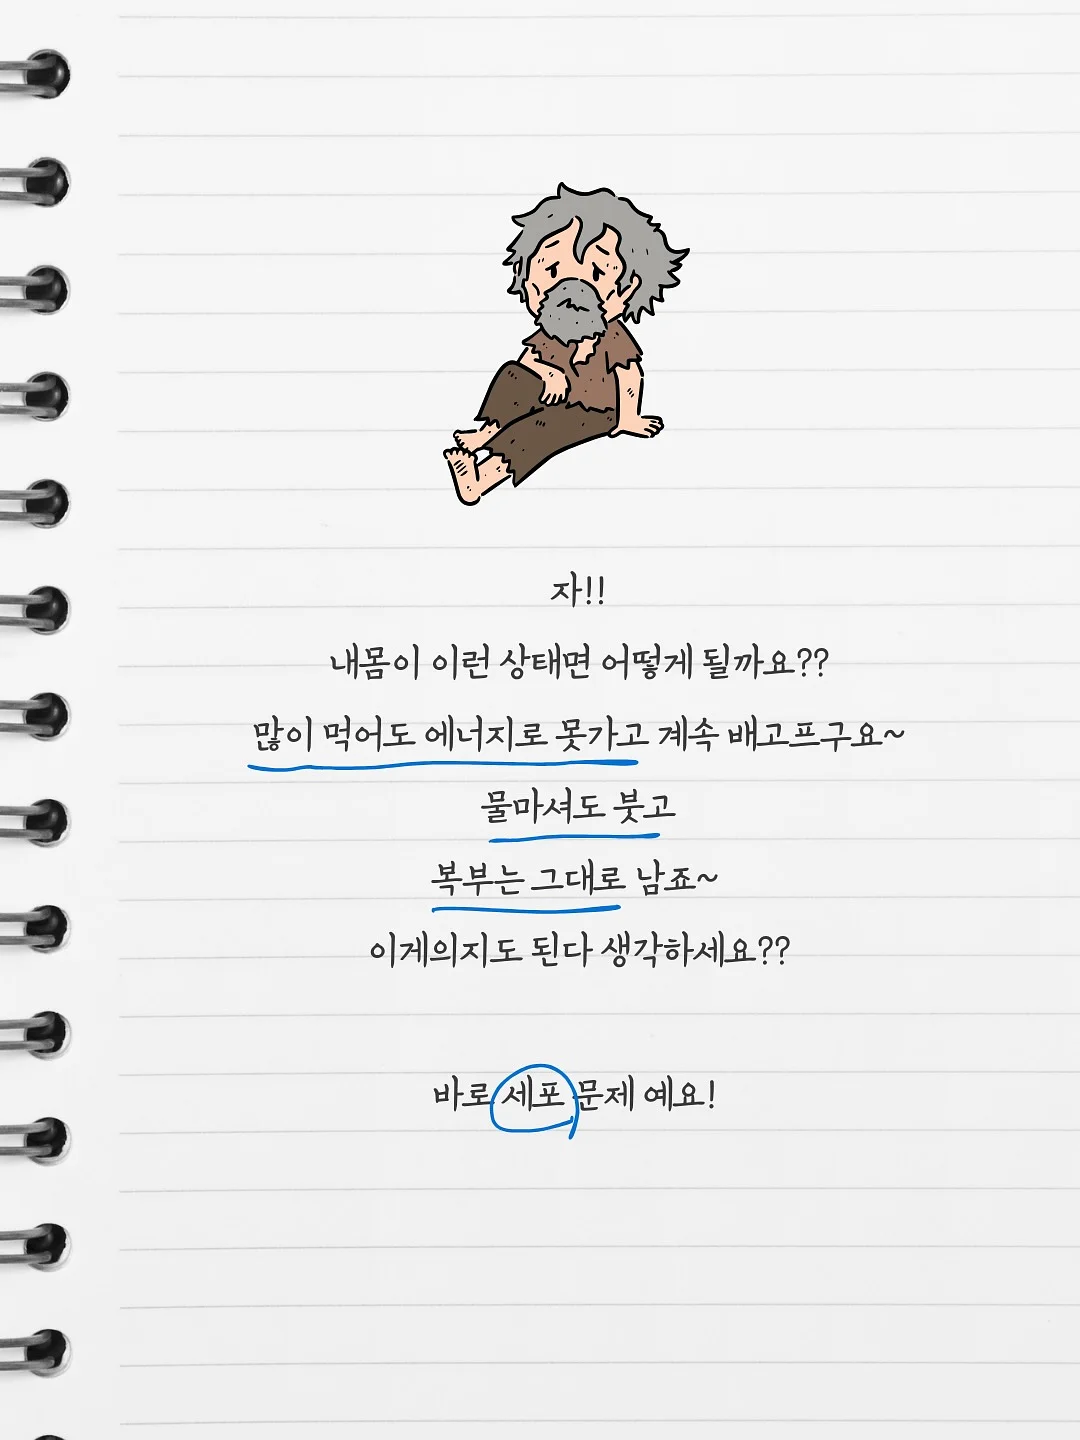 자!!
내몸이 이런 상태면 어떻게 될까요??
많이 먹어도 에너지로 못가고 계속 배고프구요~
물마셔도 붓고
복부는 그대로 남죠~
이게의지도 된다 생각하세요??
바로 세포 문제 예요!